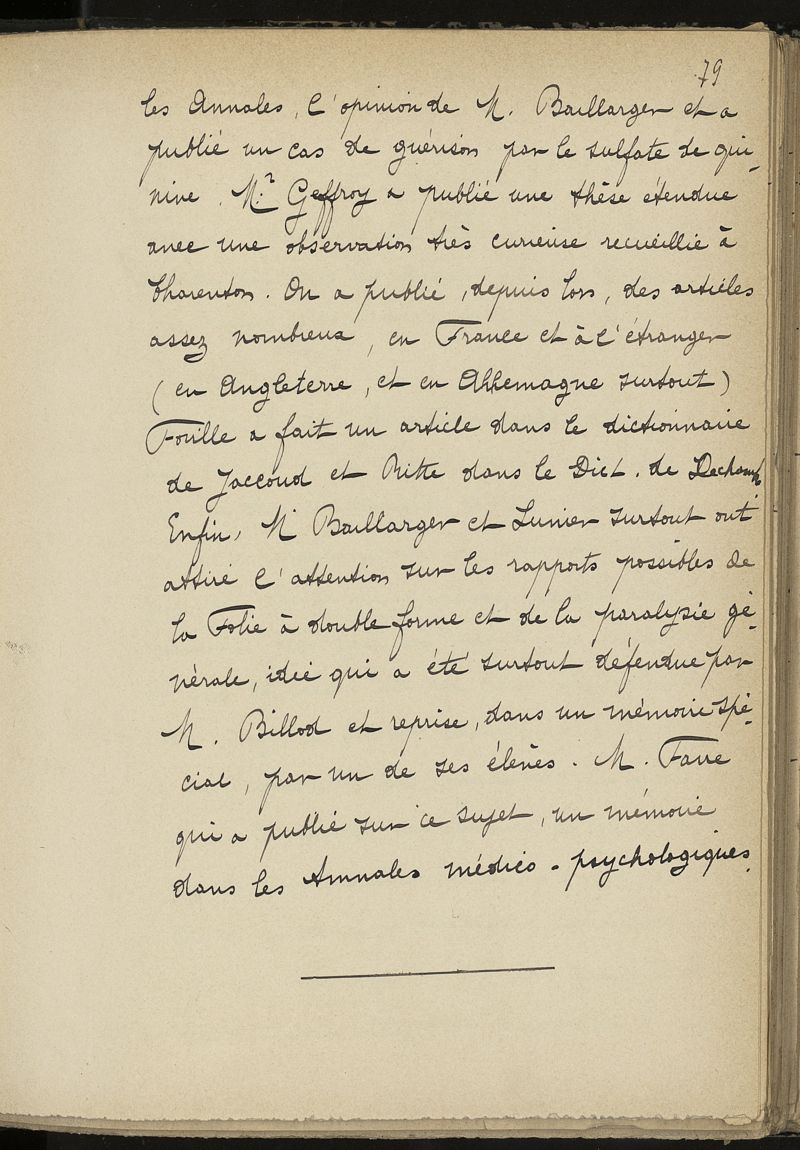 79
les Annales, l'opinion de M. Baillarger et a
publié un cas de guérison par le sulfate de qui-
nine. M.r Geffroy a publié une thèse étendue
avec une observation très curieuse recueillie à
Charenton. On a publié, depuis lors, des articles
assez nombreux, en France et à l'étranger
(en Angleterre, et en Allemagne surtout)
Foville a fait un article dans le dictionnaire
de Jaccoud et Ritte dans le Dict. de Dechamb.
Enfin, M Baillarger et Lunier surtout ont
attiré l'attention sur les rapports possibles de
la Folie à double forme et de la paralysie gé-
nérale, idée qui a été surtout défendue par
M. Billod et reprise, dans un mémoire spé-
cial, par un de ses élèves. M. Favre
qui a publié sur ce sujet, un mémoire
dans les Annales médico-psychologiques.